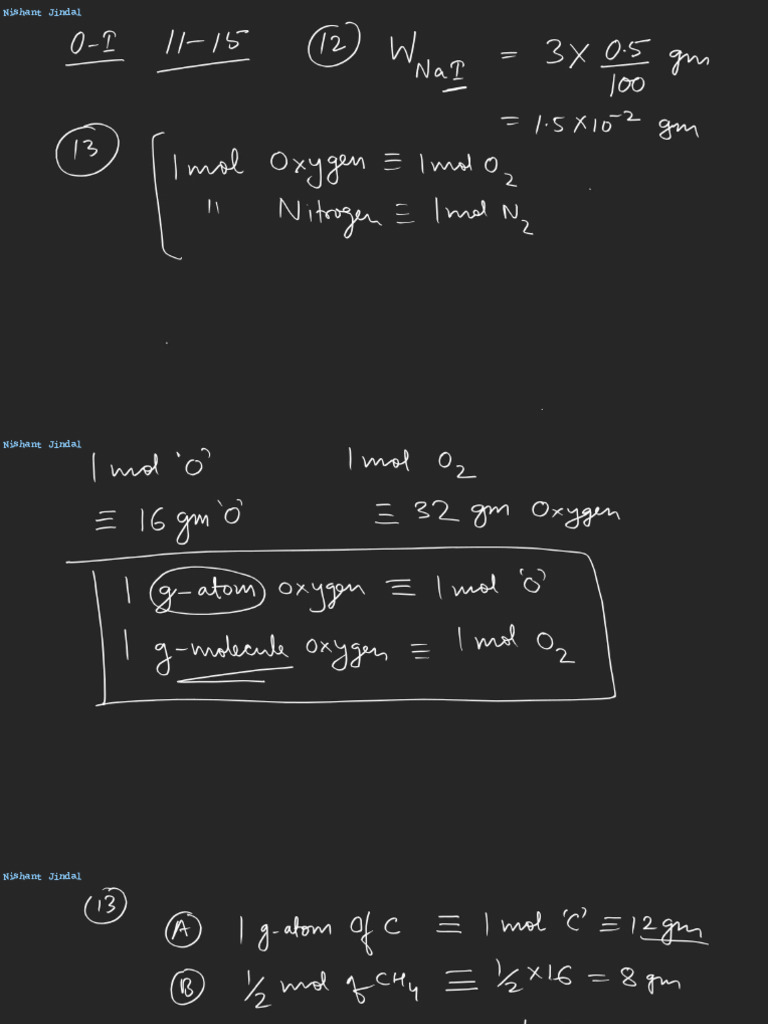 Nishant Jindal
O-I 11-15 (12) W_NaI = 3 × 0.5/100 gm
= 1.5×10^-2 gm
(13) 1 mol Oxygen ≡ 1 mol O2
" Nitrogen ≡ 1 mol N2
Nishant Jindal
1 mol 'O' 1 mol O2
≡ 16 gm 'O' ≡ 32 gm Oxygen
1 g-atom oxygen ≡ 1 mol 'O'
1 g-molecule oxygen ≡ 1 mol O2
Nishant Jindal
(13) (A) 1 g-atom of C ≡ 1 mol 'C' ≡ 12 gm
(B) 1/2 mol of CH4 ≡ 1/2 × 16 = 8 gm